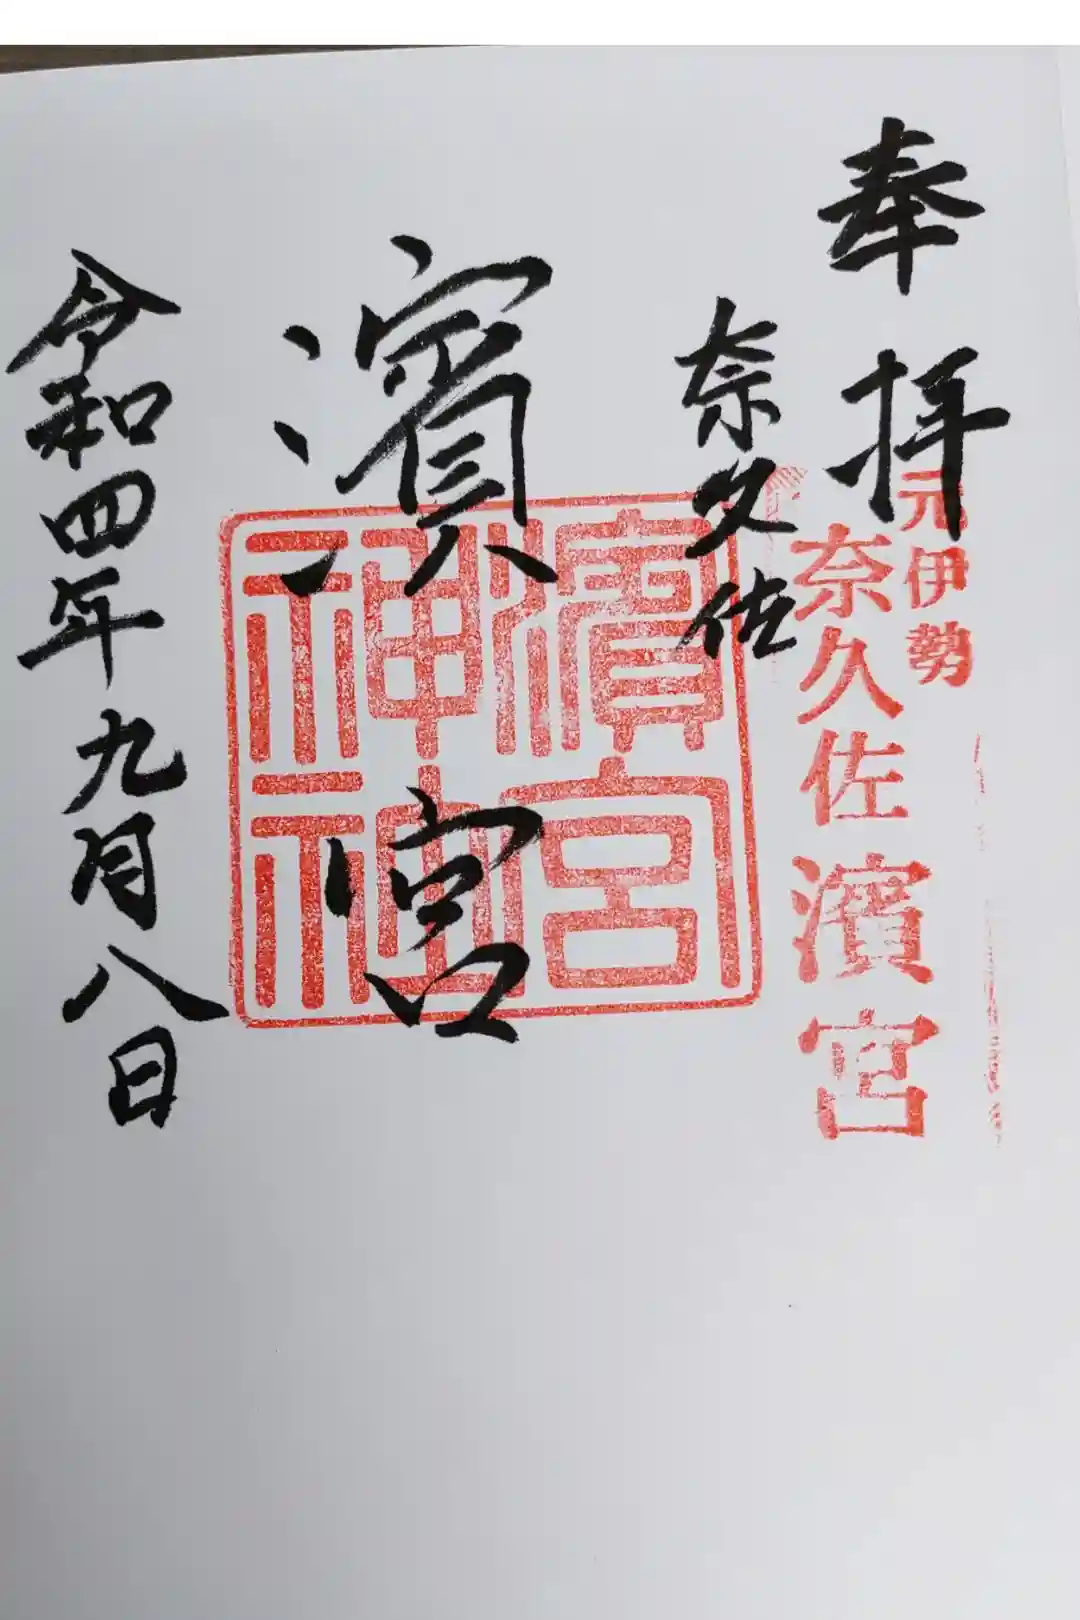 奉拝
元伊勢
奈久佐濱宮
奈久佐
濱宮
濱宮
神社
令和四年九月八日